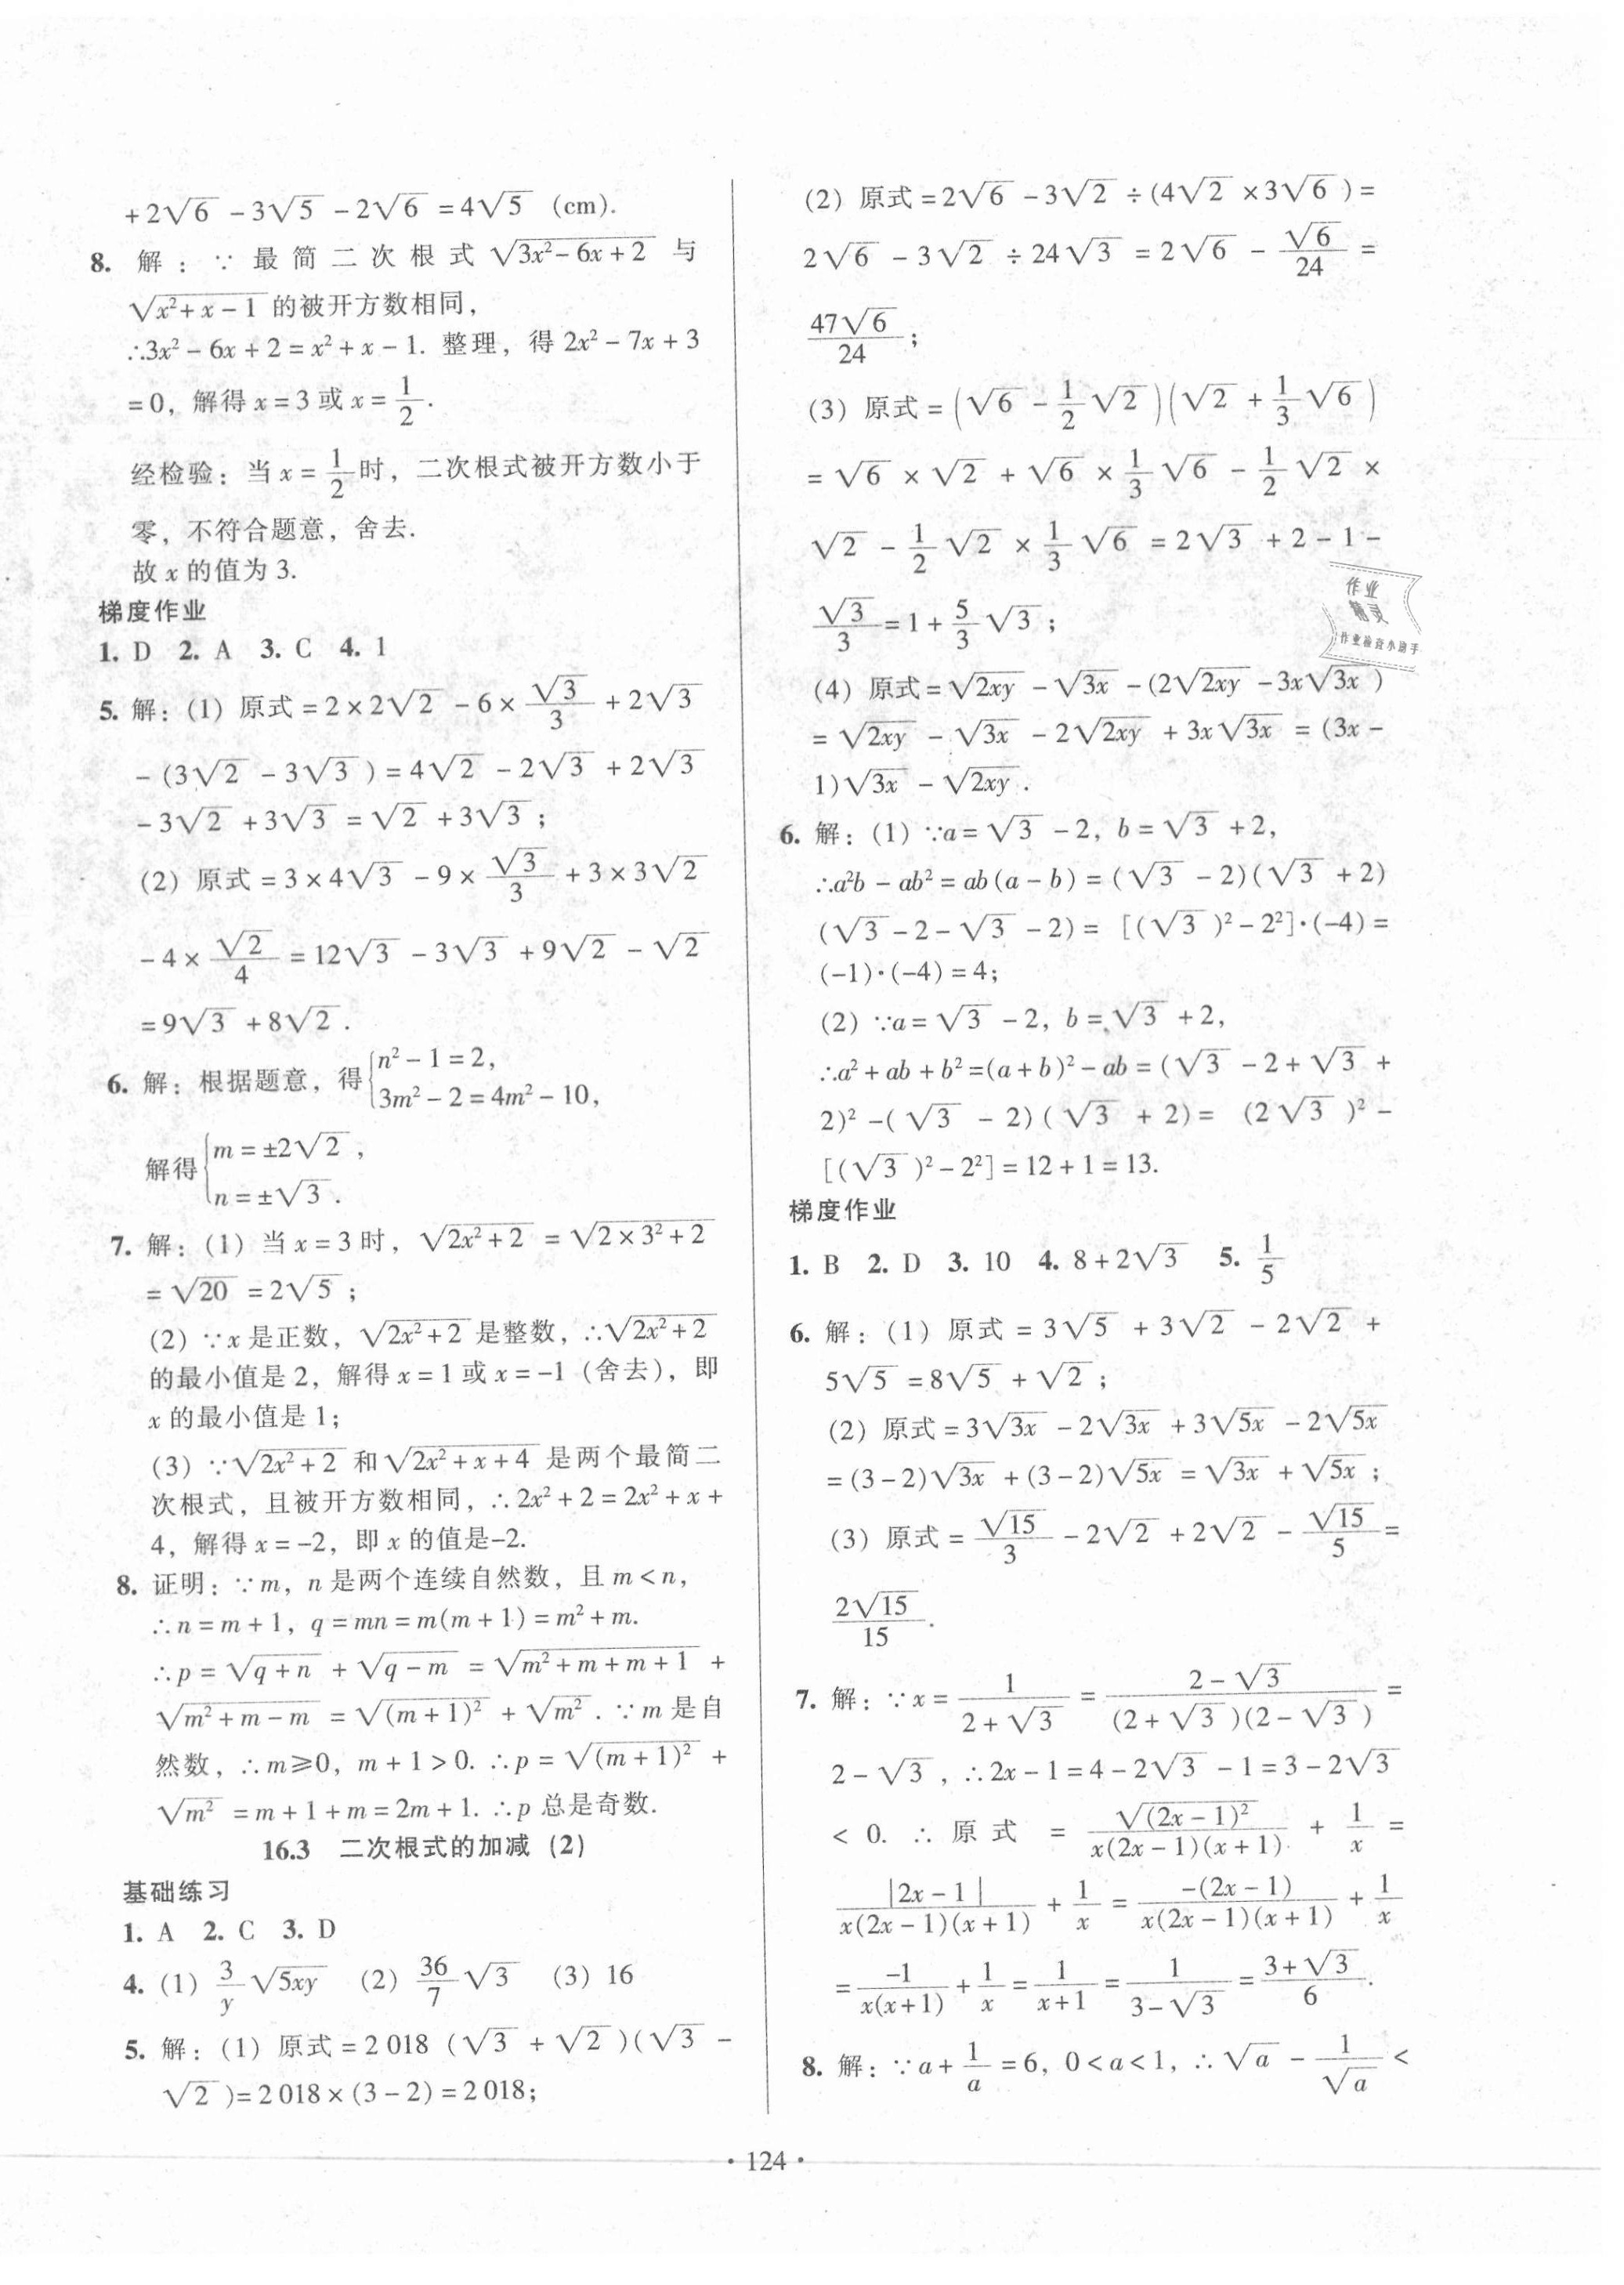 +2√6 -3√5 -2√6 =4√5 (cm).
8. 解：∵最简二次根式√(3x²-6x+2) 与
√(x²+x-1) 的被开方数相同，
∴3x²-6x+2=x²+x-1. 整理，得 2x²-7x+3
=0，解得 x=3 或 x=1/2.
经检验：当 x=1/2时，二次根式被开方数小于
零，不符合题意，舍去.
故 x 的值为 3.
梯度作业
1. D 2. A 3. C 4. 1
5. 解：(1) 原式=2×2√2 -6×√3/3 +2√3
-(3√2 -3√3 )=4√2 -2√3 +2√3
-3√2 +3√3 =√2 +3√3；
(2) 原式=3×4√3 -9×√3/3 +3×3√2
-4×√2/4 =12√3 -3√3 +9√2 -√2
=9√3 +8√2.
6. 解：根据题意，得{n²-1=2，
3m²-2=4m²-10，
解得{m=±2√2，
n=±√3.
7. 解：(1) 当 x=3 时，√(2x²+2) =√(2×3²+2)
=√20 =2√5；
(2) ∵x 是正数，√(2x²+2) 是整数，∴√(2x²+2)
的最小值是 2，解得 x=1 或 x=-1（舍去），即
x 的最小值是 1；
(3) ∵√(2x²+2) 和√(2x²+x+4) 是两个最简二
次根式，且被开方数相同，∴2x²+2=2x²+x+
4，解得 x=-2，即 x 的值是-2.
8. 证明：∵m，n 是两个连续自然数，且 m<n，
∴n=m+1，q=mn=m(m+1)=m²+m.
∴p=√(q+n) +√(q-m) =√(m²+m+m+1) +
√(m²+m-m) =√((m+1)²) +√(m²). ∵m 是自
然数，∴m≥0，m+1>0. ∴p=√((m+1)²) +
√(m²) =m+1+m=2m+1. ∴p 总是奇数.
16.3 二次根式的加减（2）
基础练习
1. A 2. C 3. D
4. (1) 3/y √(5xy) (2) 36/7 √3 (3) 16
5. 解：(1) 原式=2 018 (√3 +√2 )(√3 -
√2 )=2 018×(3-2)=2 018；
(2) 原式=2√6 -3√2 ÷(4√2 ×3√6 )=
2√6 -3√2 ÷24√3 =2√6 -√6/24 =
47√6/24；
(3) 原式=(√6 -1/2 √2 )(√2 +1/3 √6 )
=√6 ×√2 +√6 ×1/3 √6 -1/2 √2 ×
√2 -1/2 √2 ×1/3 √6 =2√3 +2-1-
√3/3 =1+5/3 √3；
作业
精灵
作业检查小助手
(4) 原式=√(2xy) -√(3x) -(2√(2xy) -3x√(3x) )
=√(2xy) -√(3x) -2√(2xy) +3x√(3x) =(3x-
1)√(3x) -√(2xy).
6. 解：(1) ∵a=√3 -2，b=√3 +2，
∴a²b-ab²=ab(a-b)=(√3 -2)(√3 +2)
(√3 -2-√3 -2)= [(√3 )²-2²]·(-4)=
(-1)·(-4)=4；
(2) ∵a=√3 -2，b=√3 +2，
∴a²+ab+b²=(a+b)²-ab=(√3 -2+√3 +
2)²-(√3 -2)(√3 +2)= (2√3 )²-
[(√3 )²-2²]=12+1=13.
梯度作业
1. B 2. D 3. 10 4. 8+2√3 5. 1/5
6. 解：(1) 原式=3√5 +3√2 -2√2 +
5√5 =8√5 +√2；
(2) 原式=3√(3x) -2√(3x) +3√(5x) -2√(5x)
=(3-2)√(3x) +(3-2)√(5x) =√(3x) +√(5x)；
(3) 原式=√15/3 -2√2 +2√2 -√15/5 =
2√15/15.
7. 解：∵x=1/(2+√3) =(2-√3)/((2+√3)(2-√3)) =
2-√3，∴2x-1=4-2√3 -1=3-2√3
<0. ∴原式=√((2x-1)²)/(x(2x-1)(x+1)) +1/x =
|2x-1|/(x(2x-1)(x+1)) +1/x =-(2x-1)/(x(2x-1)(x+1)) +1/x
=-1/(x(x+1)) +1/x =1/(x+1) =1/(3-√3) =(3+√3)/6.
8. 解：∵a+1/a =6，0<a<1，∴√a -1/√a <
·124·